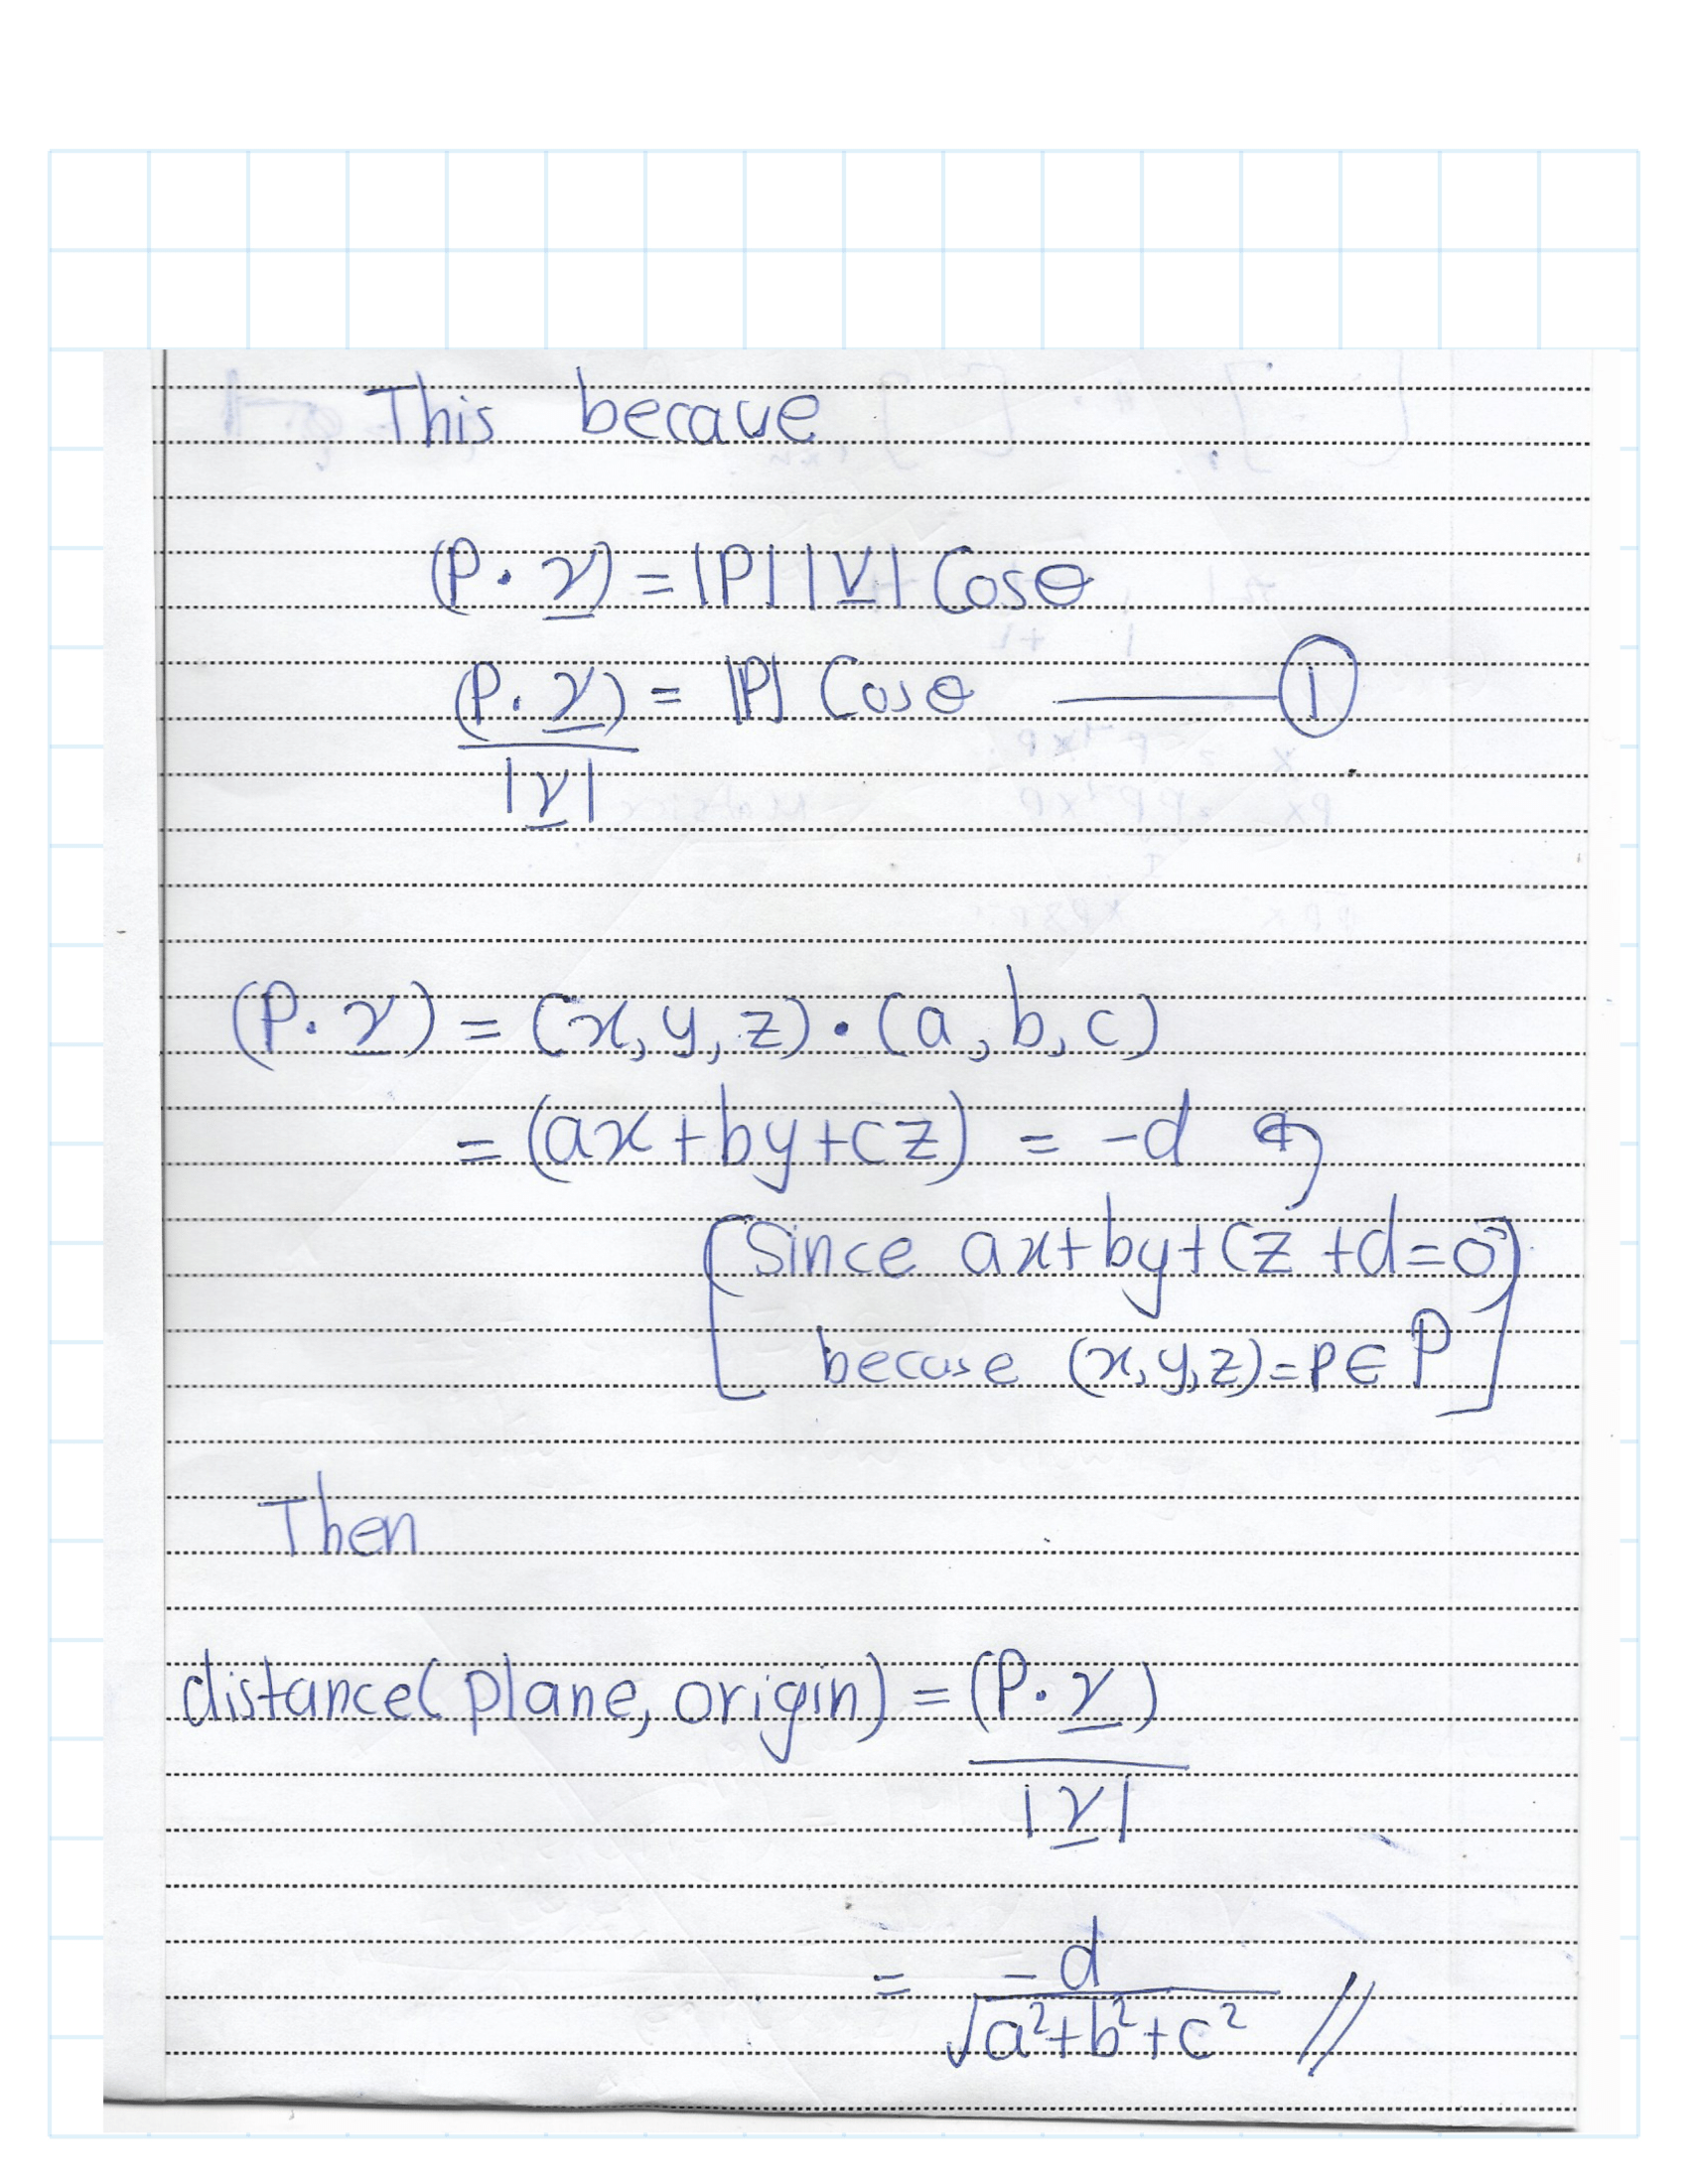 This becaue
(P. v) = |P| |v| Cosθ
(P. v) = |P| Cosθ ——— 1
|v|
(P. v) = (x, y, z) • (a, b, c)
= (ax + by + cz) = -d
[Since ax + by + cz + d = 0
becuse (x, y, z) = p ∈ P]
Then
distance( plane, origin) = (P. v)
|v|
= -d
√a²+b²+c² //